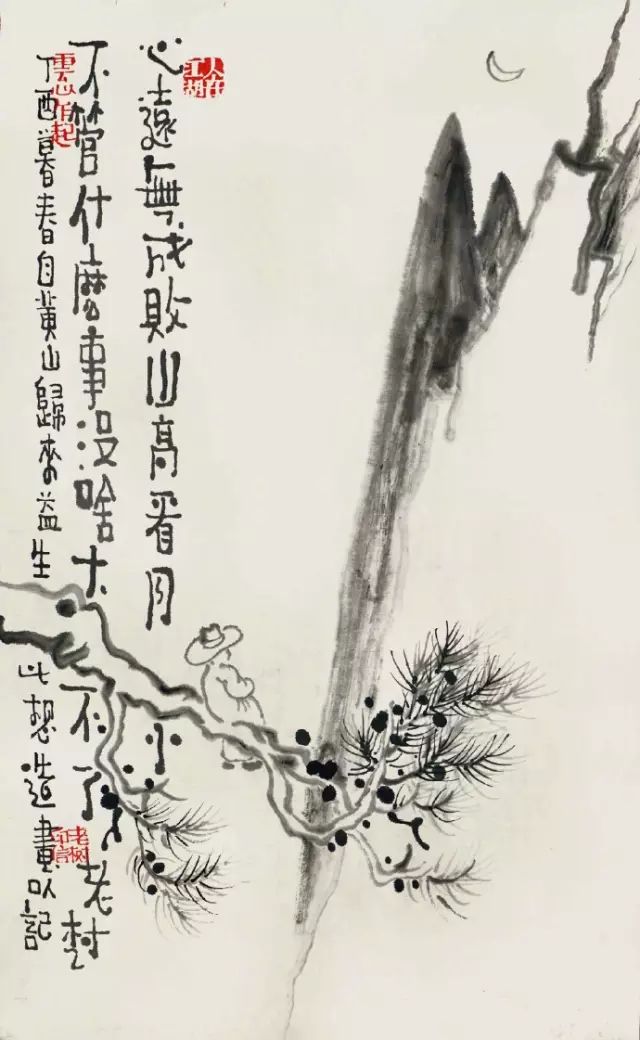 人在江湖
心遠無成敗山高看月小
不管什麼事沒啥大不了老树
丁酉暮春自黃山歸來益生此想造畫以記